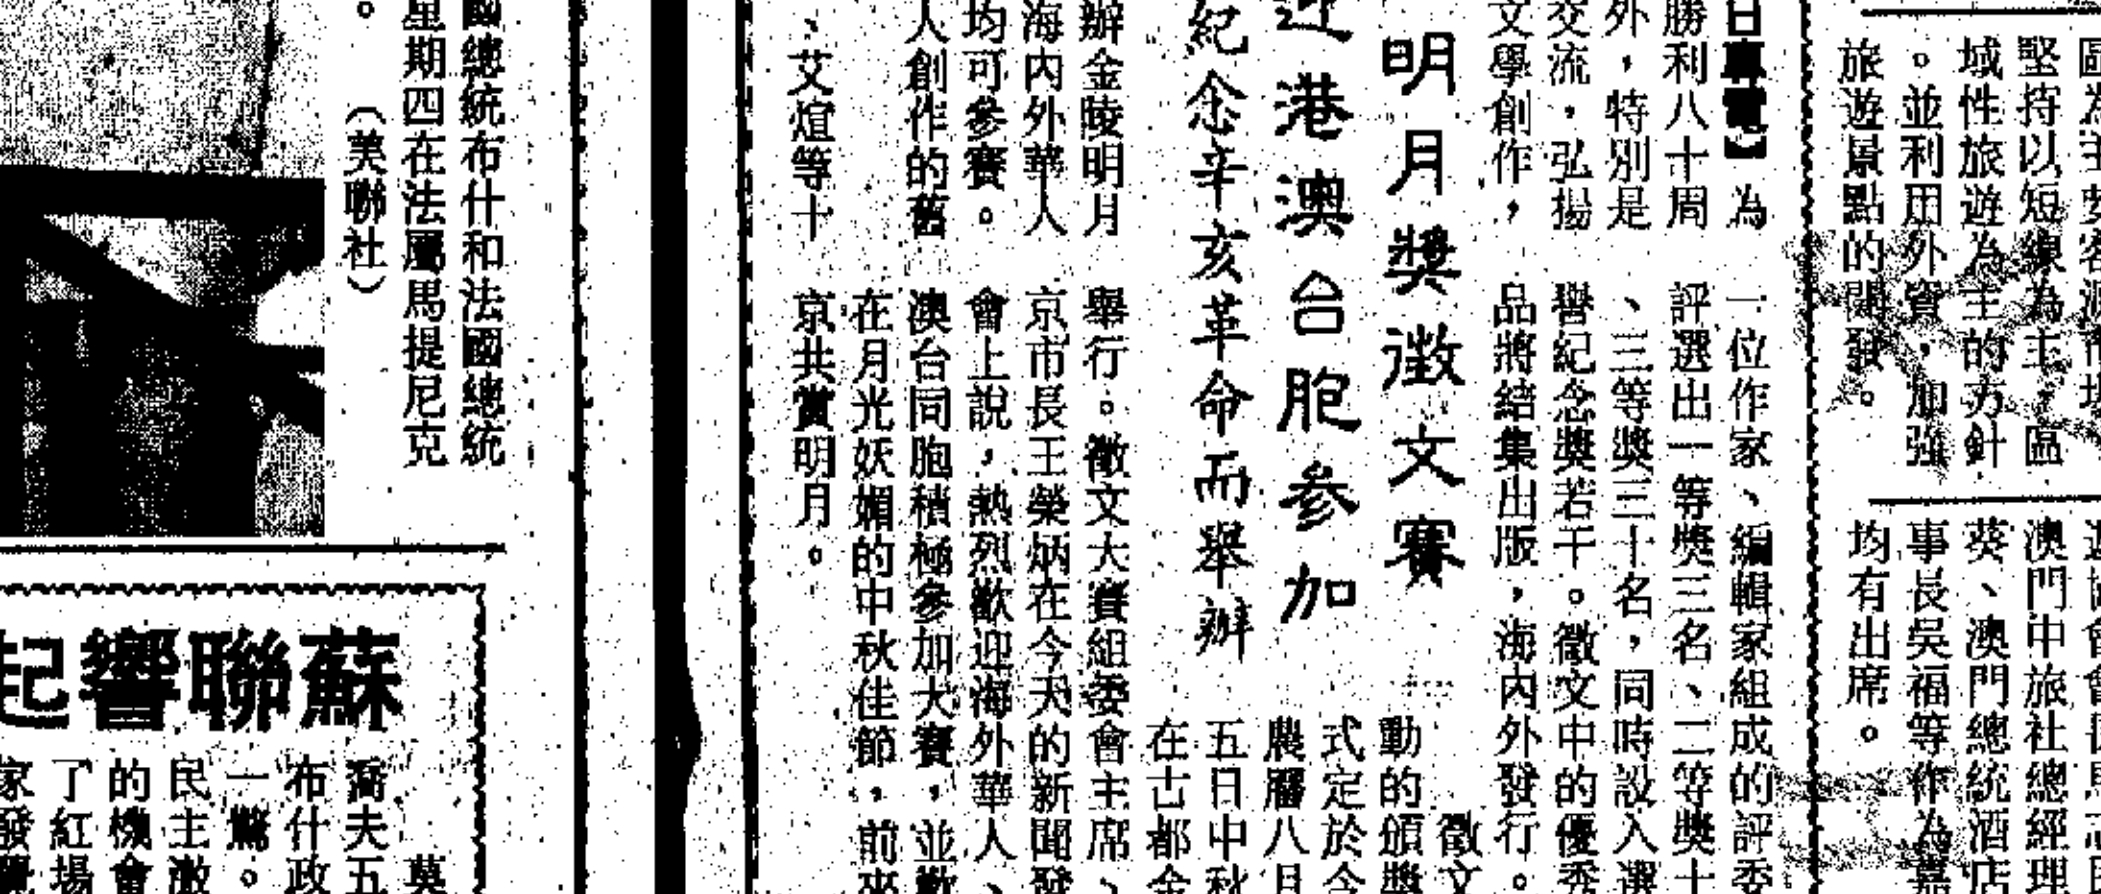 堅持以短線為主，區
城性旅遊為主的方針
。並利用外資，加強
旅遊景點的開發。
澳門中旅社總經理
葵、澳門總統酒店
事長吳福等作為嘉
均有出席。
明月獎徵文賽
迎港澳台胞參加
紀念辛亥革命而舉辦
日專電】為
勝利八十周
外，特別是
交流，弘揚
文學創作，
一位作家、編輯家組成的評委
評選出一等獎三名、二等獎十
、三等獎三十名，同時設入選
譽紀念獎若干。徵文中的優秀
品將結集出版，海內外發行。
徵文
動的頒獎
式定於今
農曆八月
五日中秋
在古都金
辦金陵明月
海內外華人
均可參賽。
人創作的舊
、艾煊等十
舉行。徵文大賽組委會主席、
京市長王榮炳在今天的新聞發
會上說，熱烈歡迎海外華人、
澳台同胞積極參加大賽，並歡
在月光妖媚的中秋佳節，前來
京共賞明月。
國總統布什和法國總統
星期四在法屬馬提尼克
。（美聯社）
蘇聯響起
莫
喬夫五
布什政
一驚。
民主激
的機會
了紅場
家發覺